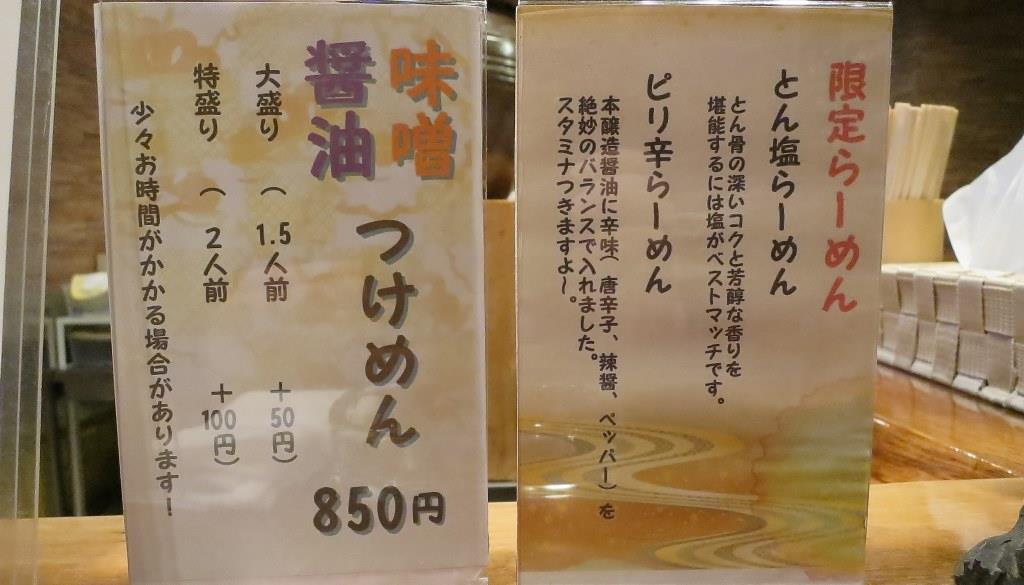 味噌
醤油
つけめん
850円
大盛り（1.5人前 ＋50円）
特盛り（2人前 ＋100円）
少々お時間がかかる場合があります！
限定らーめん
とん塩らーめん
とん骨の深いコクと芳醇な香りを
堪能するには塩がベストマッチです。
ピリ辛らーめん
本醸造醤油に辛味（唐辛子、辣醤、ペッパー）を
絶妙のバランスで入れました。
スタミナつきますよ～。